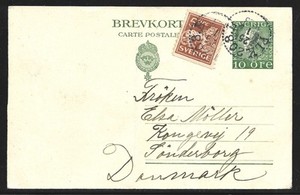 BREVKORT
CARTE POSTALE
SVERIGE
SVERIGE
10 ÖRE
Fröken
Elsa Möller
Kongevej 19
Sönderborg
Danmark